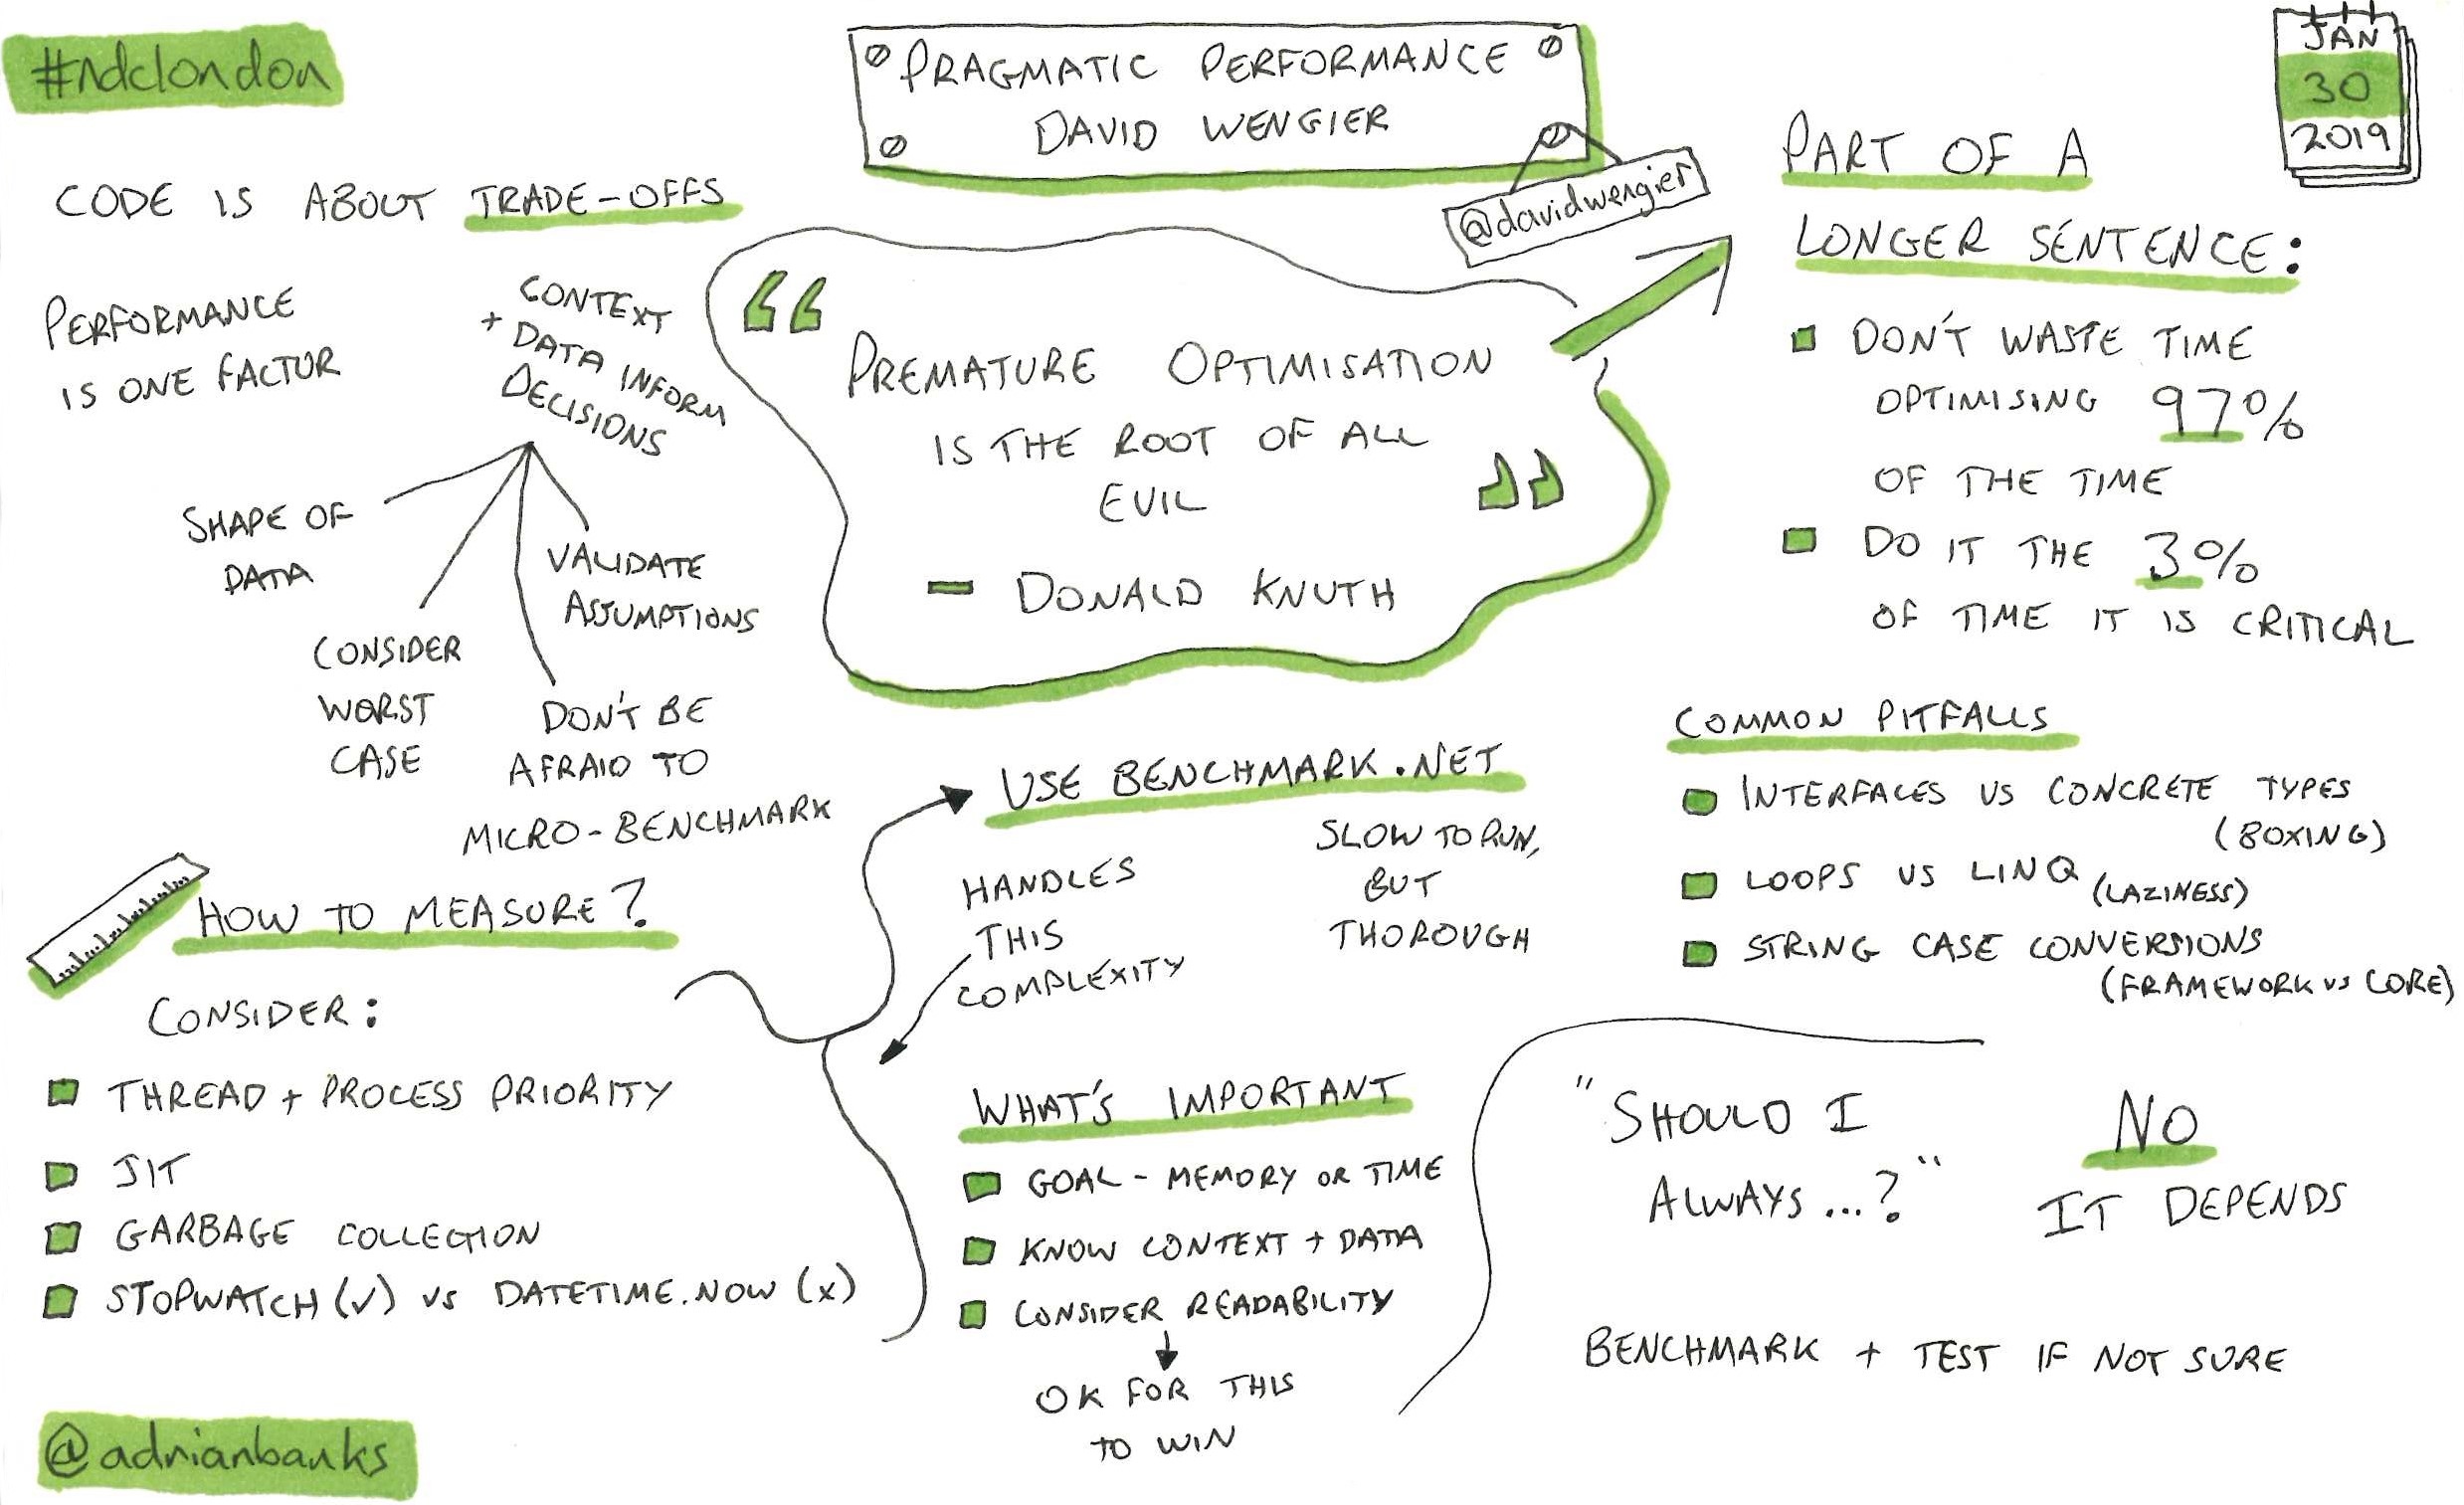 #ndclondon
PRAGMATIC PERFORMANCE
DAVID WENGIER
@davidwengier
JAN
30
2019
CODE IS ABOUT TRADE-OFFS
PERFORMANCE
IS ONE FACTOR
CONTEXT
+ DATA INFORM
DECISIONS
SHAPE OF
DATA
CONSIDER
WORST
CASE
DON'T BE
AFRAID TO
MICRO-BENCHMARK
VALIDATE
ASSUMPTIONS
“
PREMATURE OPTIMISATION
IS THE ROOT OF ALL
EVIL
”
- DONALD KNUTH
PART OF A
LONGER SENTENCE:
DON'T WASTE TIME
OPTIMISING 97%
OF THE TIME
DO IT THE 3%
OF TIME IT IS CRITICAL
HOW TO MEASURE?
CONSIDER:
THREAD + PROCESS PRIORITY
JIT
GARBAGE COLLECTION
STOPWATCH (✓) VS DATETIME.NOW (x)
USE BENCHMARK.NET
HANDLES
THIS
COMPLEXITY
SLOW TO RUN,
BUT
THOROUGH
WHAT'S IMPORTANT
GOAL - MEMORY OR TIME
KNOW CONTEXT + DATA
CONSIDER READABILITY
OK FOR THIS
TO WIN
COMMON PITFALLS
INTERFACES VS CONCRETE TYPES
(BOXING)
LOOPS VS LINQ (LAZINESS)
STRING CASE CONVERSIONS
(FRAMEWORK VS CORE)
"SHOULD I
ALWAYS...?"
NO
IT DEPENDS
BENCHMARK + TEST IF NOT SURE
@adrianbanks